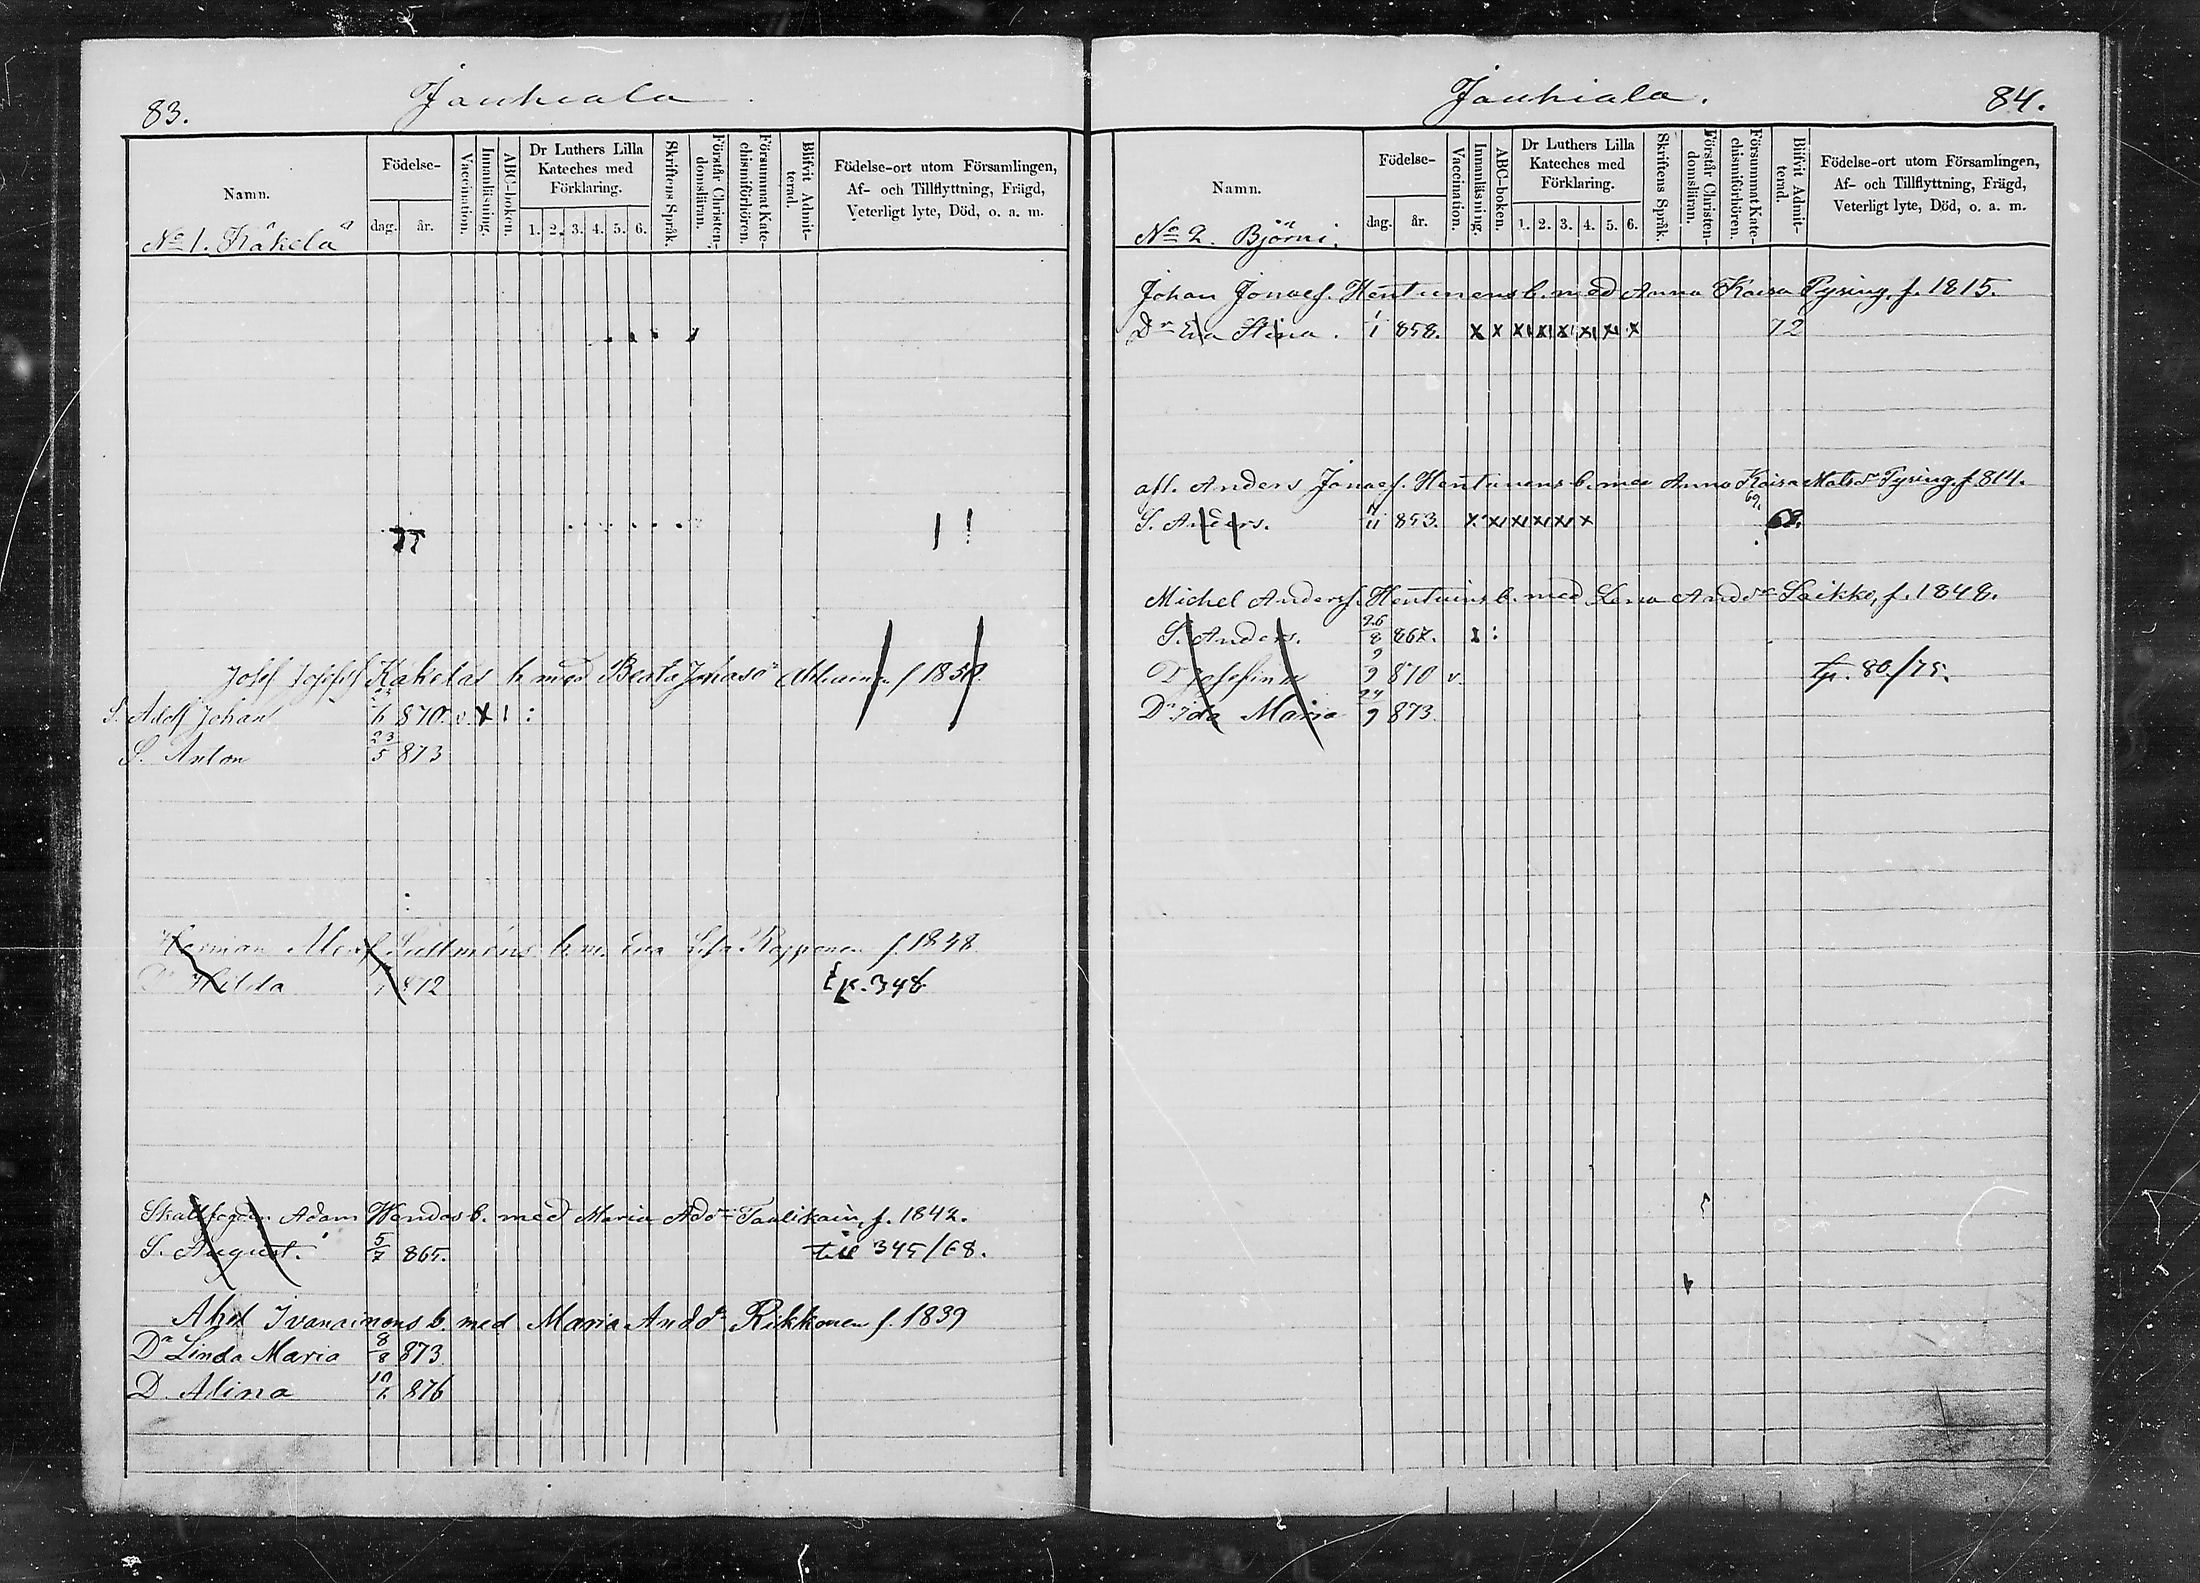 83.
Jauhiala.
Namn.
Födelse-
dag. år.
Vaccination.
Innanläsning.
ABC-boken.
Dr Luthers Lilla Kateches med Förklaring.
1. 2. 3. 4. 5. 6.
Skriftens Språk.
Förstår Christendomsläran.
Försummat Katechismiförhören.
Blifvit Admitterad.
Födelse-ort utom Församlingen, Af- och Tillflyttning, Frägd, Veterligt lyte, Död, o. a. m.
No 1. Käkelä
Josef Josefsf Käkeläs b. med Beata f 1850
S. Adolf Johan 870. v. x 1 :
S. Anton 23/5 873
Herman b. m. Eva Lisa Rapponen f. 1848.
Dr Hilda 872 fl. 348
Adam Wendas b. med Maria Add r f. 1842.
S. August. 5/7 865. till 345/68.
Abel Ivanainens b. med Maria And dr Rikkonen f. 1839
Dr Linda Maria 8/8 873
D. Alina 876
Jauhiala. 84.
Namn.
Födelse-
dag. år.
Vaccination.
Innanläsning.
ABC-boken.
Dr Luthers Lilla Kateches med Förklaring.
1. 2. 3. 4. 5. 6.
Skriftens Språk.
Förstår Christendomsläran.
Försummat Katechismiförhören.
Blifvit Admitterad.
Födelse-ort utom Församlingen, Af- och Tillflyttning, Frägd, Veterligt lyte, Död, o. a. m.
No 2. Björni.
Johan Jonaef. Hentunens b. med Anna Kaisa Pyring, f. 1815.
Dr Eva Stina. 1/1 858. x x x x x x x x 72
afl. Anders Jonaef. Hentunens b. med Anna Kaisa Mats dr Pyring, f. 814.
69.
S. Anders. 853. x x x x x x 69.
Michel Andersf. Hentuins b. med Lena And dr Saikko, f. 1848.
S. Anders. 26/8 867. x :
D Josefina 9/9 870 v. fl. 80./75.
Dr Ida Maria 24/9 873